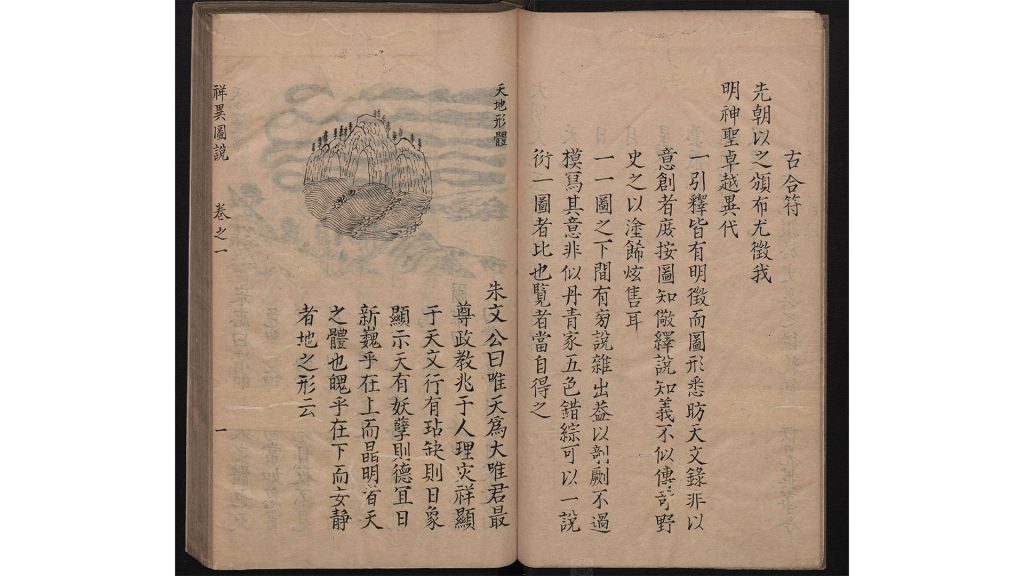 古合符
先朝以之頒布尤徵我
明神聖卓越異代
一引釋皆有明徵而圖形悉昉天文錄非以
意創者庶按圖知儆繹説知義不似傳竒野
史之以塗餙炫售耳
一一圖之下間有旁説雜出葢以剖劂不過
模寫其意非似丹青家五色錯綜可以一説
衍一圖者比也覽者當自得之
天地形體
朱文公曰唯天爲大唯君最
尊政教兆于人理灾祥顯
于天文行有玷缺則日象
顯示天有妖孽則德冝日
新巍乎在上而晶明者天
之體也魄乎在下而安静
者地之形云
祥異圖説 卷之一 一